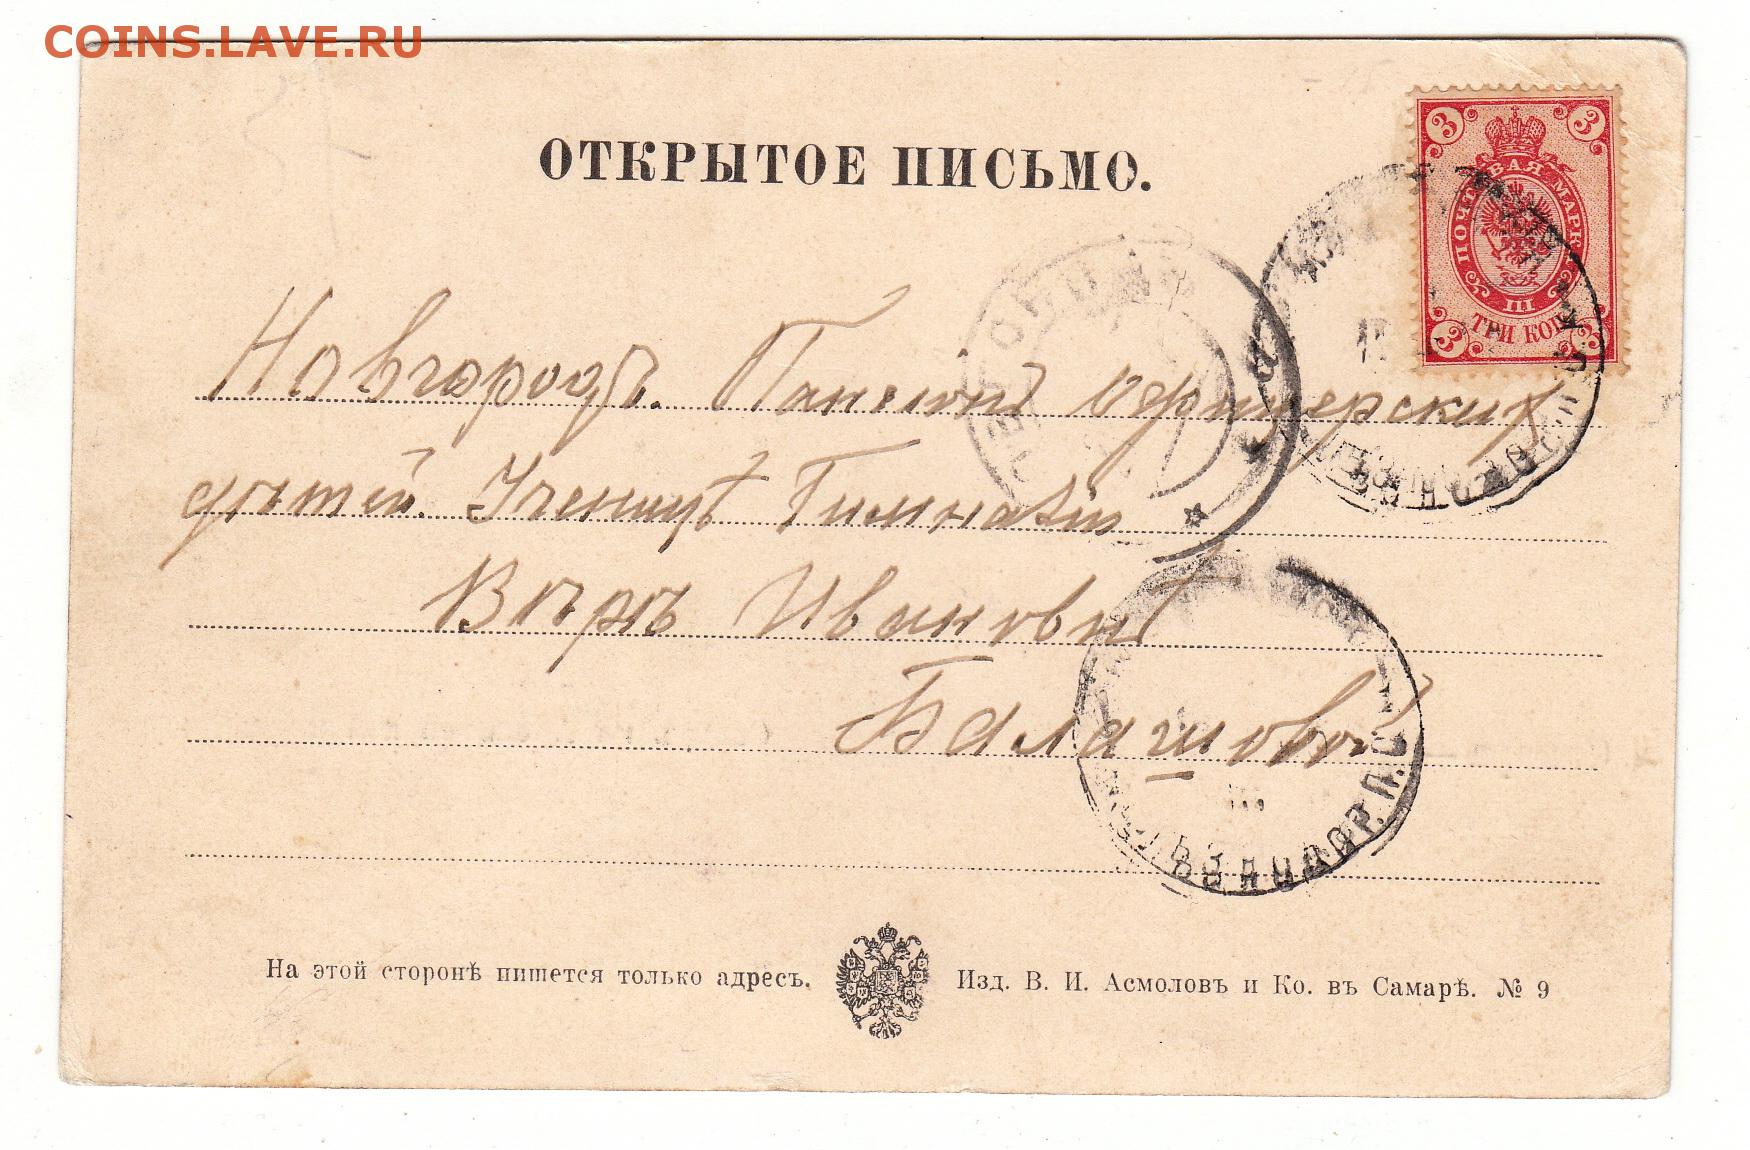 COINS.LAVE.RU
ОТКРЫТОЕ ПИСЬМО.
3 3
ПОЧТОВАЯ МАРКА
III
3 ТРИ КОП. 3
Новгородъ. Пансіонъ Офицерскихъ
дѣтей. Ученицѣ Гимназіи
Вѣрѣ Ивановнѣ
Балашовой
На этой сторонѣ пишется только адресъ.
Изд. В. И. Асмоловъ и Ко. въ Самарѣ. № 9